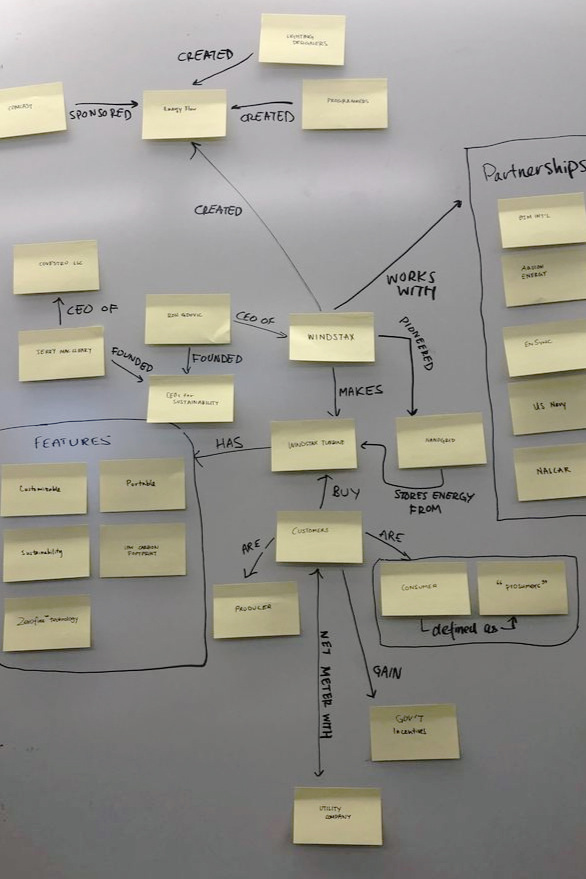 LIGHTING
DESIGNERS
CREATED
COMCAST
SPONSORED
Energy Flow
CREATED
PROGRAMMERS
CREATED
WORKS
WITH
Partnerships
ARDIAN
ENERGY
EnSync
US Navy
NASCAR
COVESTRO LLC
CEO OF
JERRY MACCLEARY
FOUNDED
RON GDOVIC
CEO OF
FOUNDED
CEOs For
SUSTAINABILITY
WINDSTAX
PIONEERED
MAKES
WINDSTAX TURBINE
NANOGRID
STORES ENERGY
FROM
HAS
FEATURES
Customizable
Portable
Sustainability
LOW CARBON
FOOTPRINT
technology
BUY
CUSTOMERS
ARE
PRODUCER
ARE
CONSUMER
"prosumers"
defined as
NET METER WITH
GAIN
GOV'T
Incentives
UTILITY
COMPANY